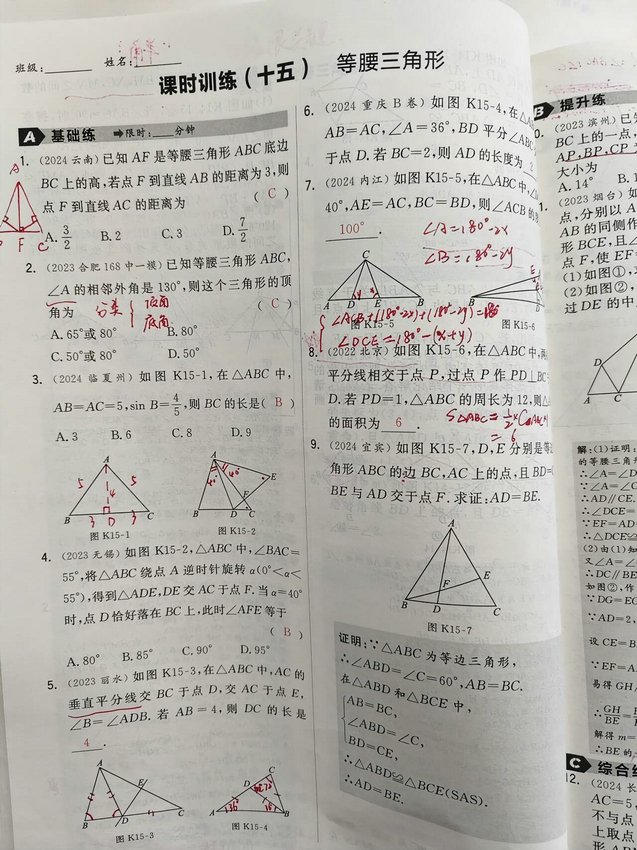 班级: 姓名:
课时训练(十五) 等腰三角形
A 基础练 ➡限时: 分钟
1. (2024 云南)已知 AF 是等腰三角形 ABC 底边
BC 上的高,若点 F 到直线 AB 的距离为 3,则
点 F 到直线 AC 的距离为 ( C )
A. 3/2 B. 2 C. 3 D. 7/2
A
F C
2. (2023 合肥 168 中一模)已知等腰三角形 ABC,
∠A 的相邻外角是 130°,则这个三角形的顶
角为 分类 { 顶角 底角 ( C )
A. 65°或 80° B. 80°
C. 50°或 80° D. 50°
3. (2024 临夏州)如图 K15-1,在△ABC 中,
AB=AC=5,sin B=4/5,则 BC 的长是( B )
A. 3 B. 6 C. 8 D. 9
A 5 5 4 B 3 D 3 C
图 K15-1
A 40° 40° E F B D C
图 K15-2
4. (2023 无锡)如图 K15-2,△ABC 中,∠BAC=
55°,将△ABC 绕点 A 逆时针旋转 α(0°<α<
55°),得到△ADE,DE 交 AC 于点 F.当 α=40°
时,点 D 恰好落在 BC 上,此时∠AFE 等于
( B )
A. 80° B. 85° C. 90° D. 95°
5. (2023 丽水)如图 K15-3,在△ABC 中,AC 的
垂直平分线交 BC 于点 D,交 AC 于点 E,
∠B=∠ADB. 若 AB=4,则 DC 的长是
4 .
A E B D C
图 K15-3
B D 36° A C
图 K15-4
6. (2024 重庆 B 卷)如图 K15-4,在△
AB=AC,∠A=36°,BD 平分∠
于点 D. 若 BC=2,则 AD 的长度为
7. (2024 内江)如图 K15-5,在△ABC 中,∠
40°,AE=AC,BC=BD,则∠ACB 的
100° .
∠A=180°-2x
∠B=180°-2y
C y x A D E B
图 K15-5
E B
图 K15-6
∠ACB+(180°-2x)+(180°-2y)=180°
∠DCE=180°-(x+y)
8. (2022 北京)如图 K15-6,在△ABC 中,
平分线相交于点 P,过点 P 作 PD⊥BC
D. 若 PD=1,△ABC 的周长为 12,则△
的面积为 6 .
S△ABC=1/2×C△ABC
=6
9. (2024 宜宾)如图 K15-7,D,E 分别是等
角形 ABC 的边 BC,AC 上的点,且 BD=
BE 与 AD 交于点 F. 求证:AD=BE.
A E F B D C
图 K15-7
证明:∵△ABC 为等边三角形,
∴∠ABD=∠C=60°,AB=BC.
在△ABD 和△BCE 中,
AB=BC,
∠ABD=∠C,
BD=CE,
∴△ABD≌△BCE(SAS).
∴AD=BE.
B 提升练
0. (2023 滨州)已
BC 上的一点,
AP,BP,CP
大小为
A. 14° B. 1
(2023 烟台)如
点,分别以 A
AB 的同侧作
形 BCE,且∠
点 F,使 EF=
(1)如图①,
(2)如图②,
过 DE 的中
D
A C
解:(1)证明:
的等腰三角形
∴∠A=∠D
∵∠A=∠C
∴AD∥CE.
∴∠DCE=
∵EF=AD
∴△DCE≌
(2)由(1)知
又∠A=∠
∴DC∥BE
如图②,作
∵DG=EG
∵AD=2,
设 CE=B
∵EF=A
易得 GH
∴GH/BE=
解得 m=
∴BE 的
C 综合练
12. (2024 长
AC=5,
不与点
上取点